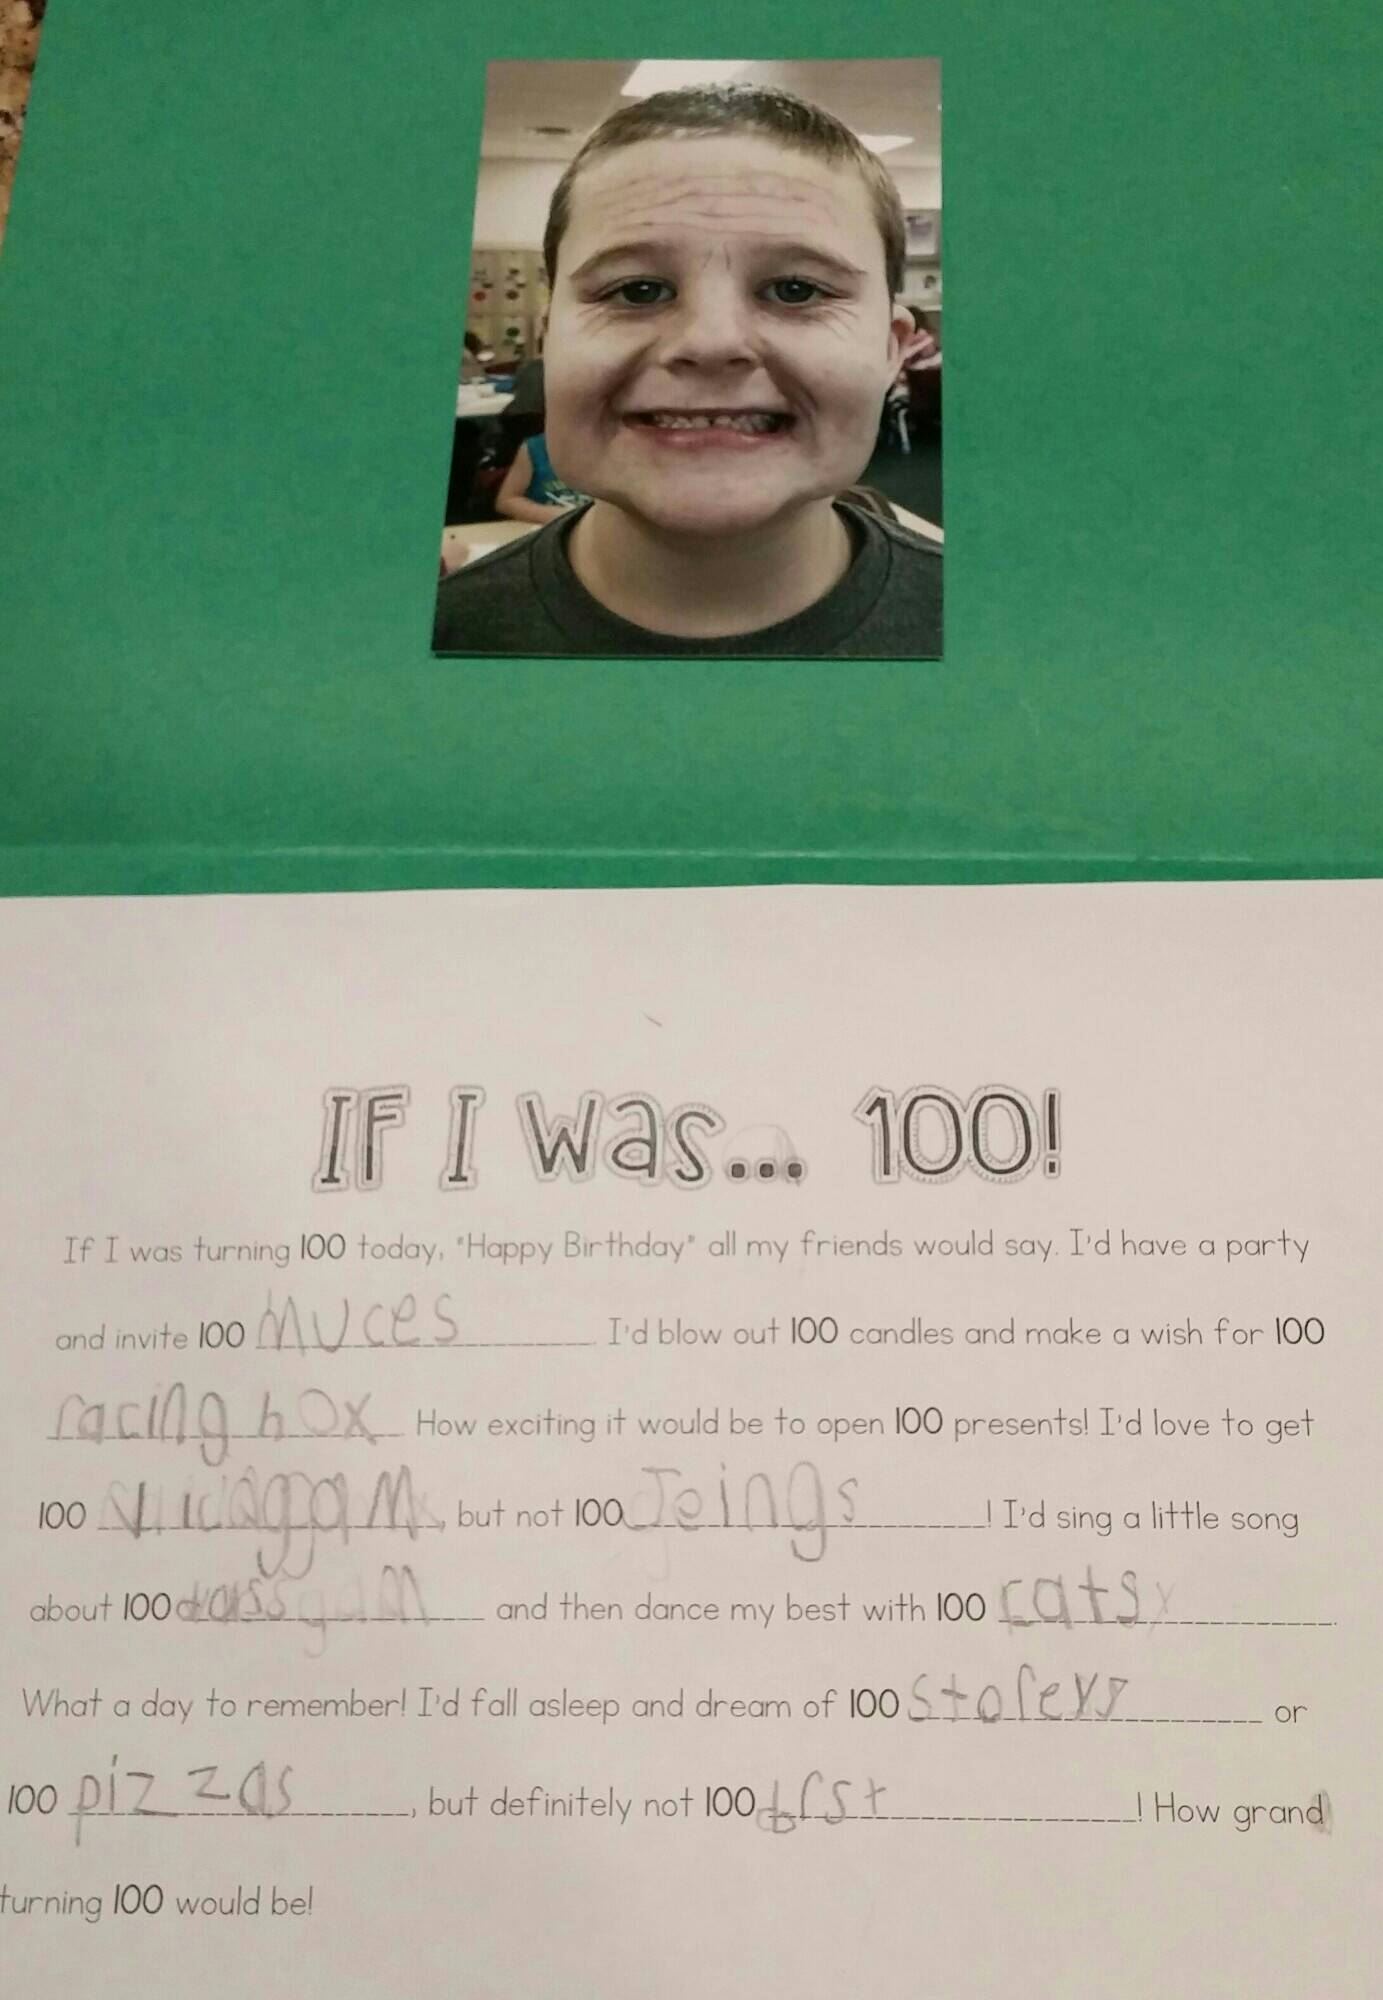 IF I Was... 100!
If I was turning 100 today, "Happy Birthday" all my friends would say. I'd have a party
and invite 100 Muces I'd blow out 100 candles and make a wish for 100
racing hox How exciting it would be to open 100 presents! I'd love to get
100 , but not 100 Jeings ! I'd sing a little song
about 100 and then dance my best with 100 cats.
What a day to remember! I'd fall asleep and dream of 100 or
100 pizzas, but definitely not 100 ! How grand
turning 100 would be!